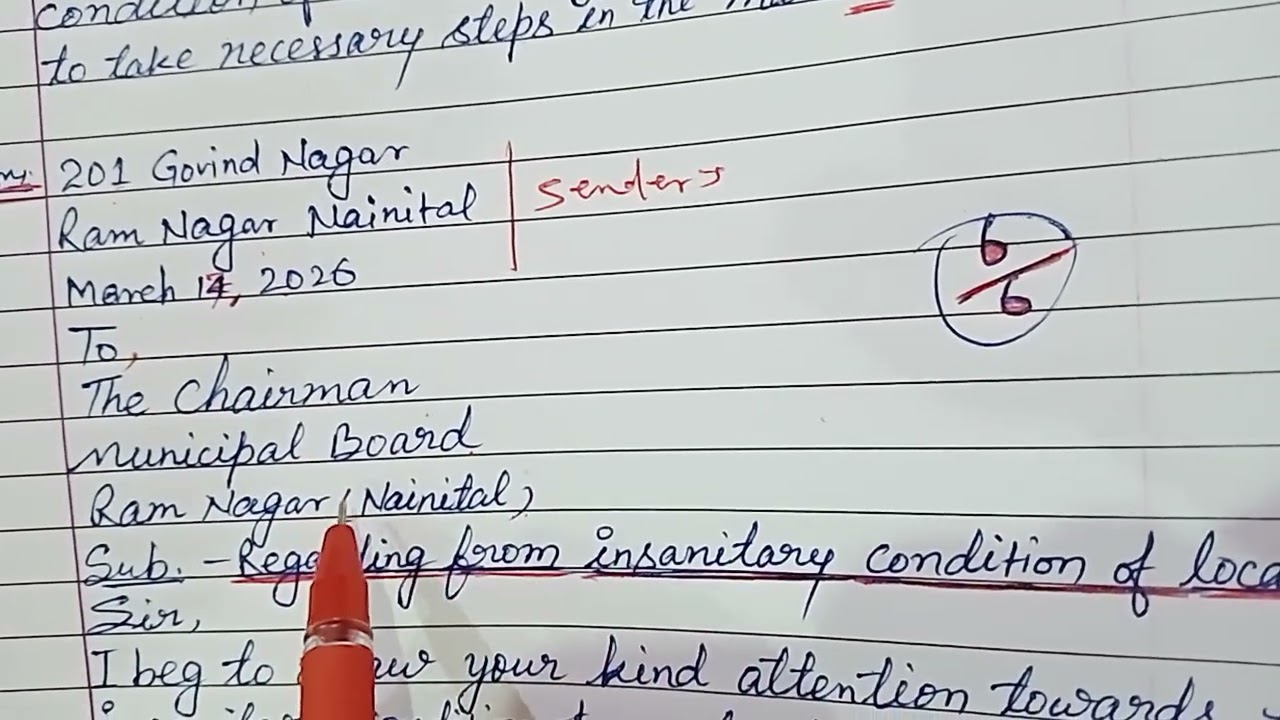 to take necessary steps in the
201 Govind Nagar
Ram Nagar Nainital
Senders
March 14, 2026
6/6
To,
The Chairman
Municipal Board
Ram Nagar (Nainital)
Sub. - Regarding from insanitary condition of loca
Sir,
I beg to your kind attention towards